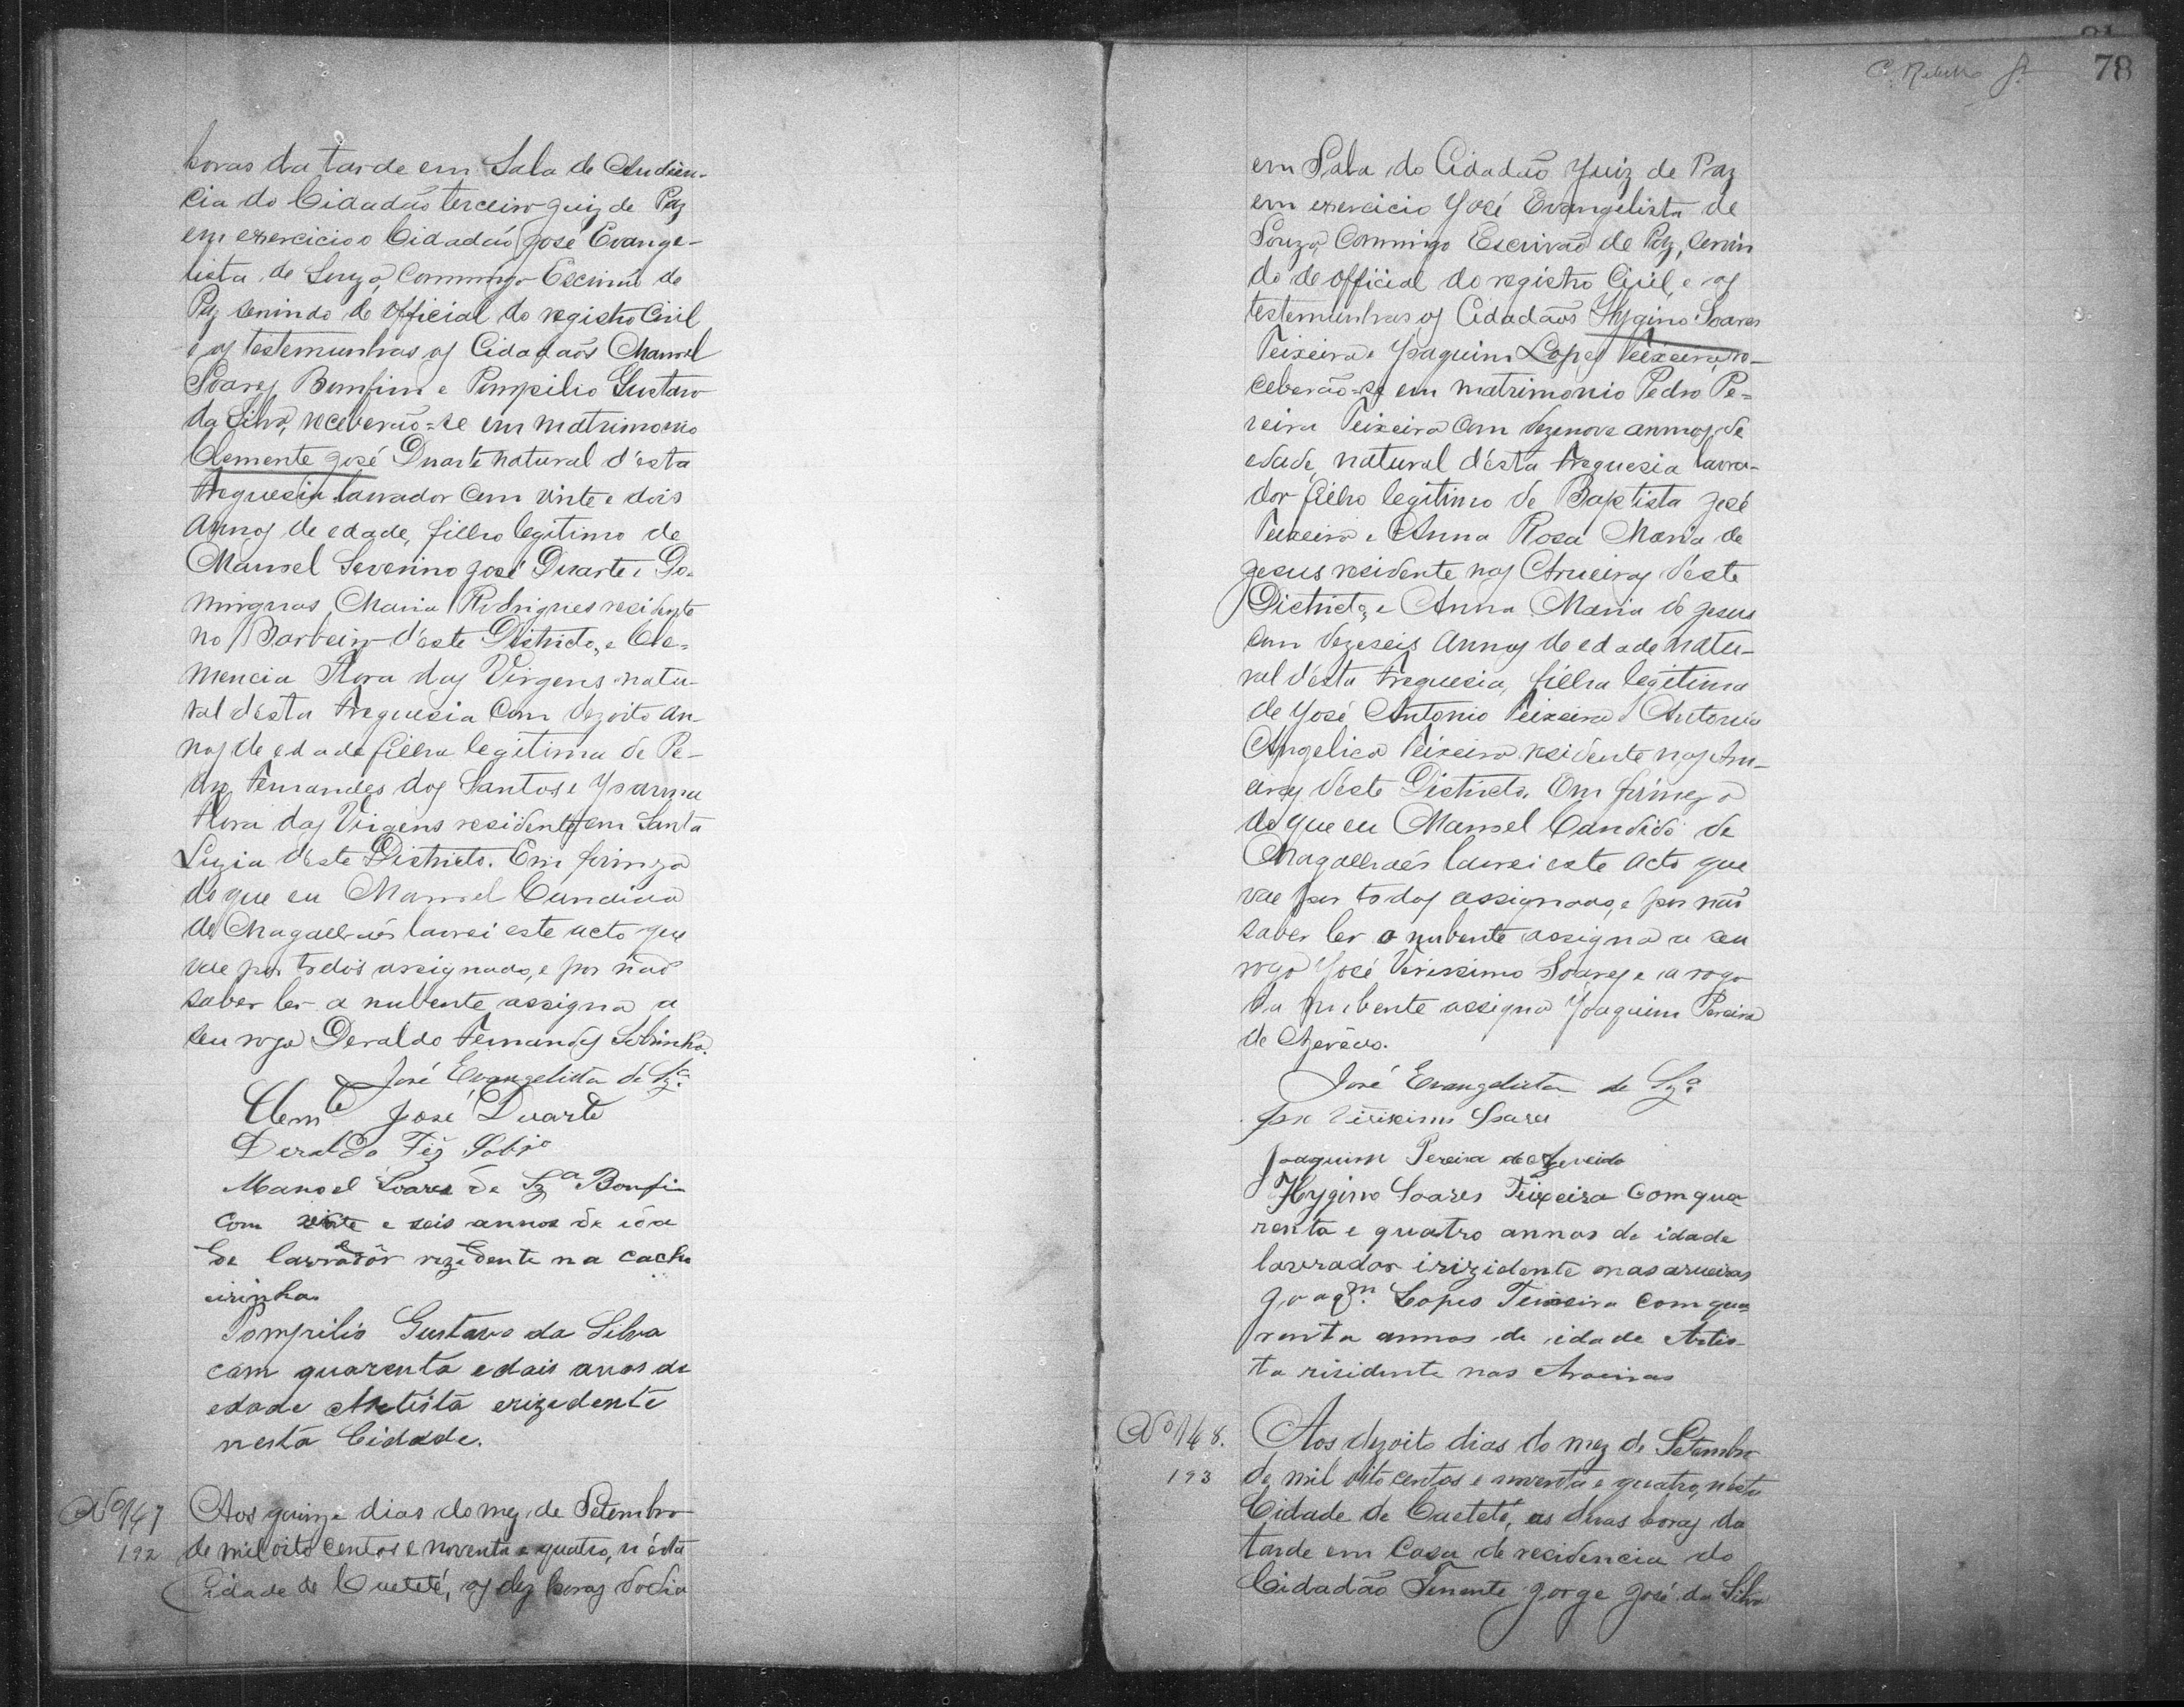 horas da tarde em Sala de Audien-
cia do Cidadão terceiro juiz de Paz
em exercicio o Cidadão José Evange-
lista de Souza, Commigo Escrivão de
Paz servindo de Official do registro Civil
e as testemunhas os Cidadãos Manoel
Soares Bomfim e Pompilio Gustavo
da Silva, receberão-se em matrimonio
Clemente José Duarte natural d'esta
freguesia lavrador com vinte e dois
annos de edade, filho legitimo de
Manoel Severino José Duarte e Do-
mingas Maria Rodrigues residente
no Barbeiro d'este Districto, e Cle-
mencia Flora das Virgens natu-
ral d'esta freguesia com dezoito an-
nos de edade filha legitima de
Fernandes dos Santos e
Flora das Virgens residente em Santa
Luzia d'este Districto. Em firmeza
do que eu Manoel Candido
de Magalhães lavrei este acto que
vae por todos assignado, e por não
saber ler a nubente assigna a
seu rogo Deraldo Fernandes Sobrinho.
José Evangelista de Sza
Clemte José Duarte
Deraldo Fez Sobro
Manoel Soares de Sza Bonfim
com vinte e seis annos de ida
de lavrador rezidente na cacho
eirinha
Pompilio Gustavo da Silva
com quarenta e dois anos de
edade Artista erizedente
nesta Cidade.
No 147 Aos quinze dias do mez de Setembro
192 de mil oito centos e noventa e quatro, n'esta
Cidade de Caeteté, as dez horas do dia
78
em Sala do Cidadão Juiz de Paz
em exercicio José Evangelista de
Souza, Commigo Escrivão de Paz, servin
do de official do registro Civil, e as
testemunhas os Cidadãos Hygino Soares
Teixeira e Joaquim Lopes Teixeira, re-
ceberão-se em matrimonio Pedro Pe-
reira Teixeira com dezenove annos de
edade, natural d'esta freguesia lavra-
dor filho legitimo de Baptista José
Teixeira e Anna Rosa Maria de
Jesus residente nas Arueiras d'este
Districto, e Anna Maria de Jesus
com dezeseis annos de edade natu-
ral d'esta freguesia, filha legitima
de José Antonio Teixeira e Antonia
Angelica Teixeira residente nas Aru-
eiras d'este Districto. Em firmeza
do que eu Manoel Candido de
Magalhães lavrei este acto que
vae por todos assignado, e por não
saber ler o nubente assigna a seu
rogo José Verissimo Soares e a rogo
da nubente assigna Joaquim Pereira
de Azevêdo.
José Evangelista de Sza
José Virissimo Soares
Joaquim Pereira de Azeveido
Hygino Soares Teixeira Com qua
renta e quatro annos de idade
lavrador irizidente nas arueiras
Joaqm. Lopes Teixeira com qua
renta annos de idade Artis-
ta risidente nas Aroeiras
No 148. Aos dezoito dias do mez de Setembro
193 de mil oito centos e noventa e quatro, nesta
Cidade de Caeteté, as duas horas da
tarde em Casa de residencia do
Cidadão Tenente Jorge José da Silva